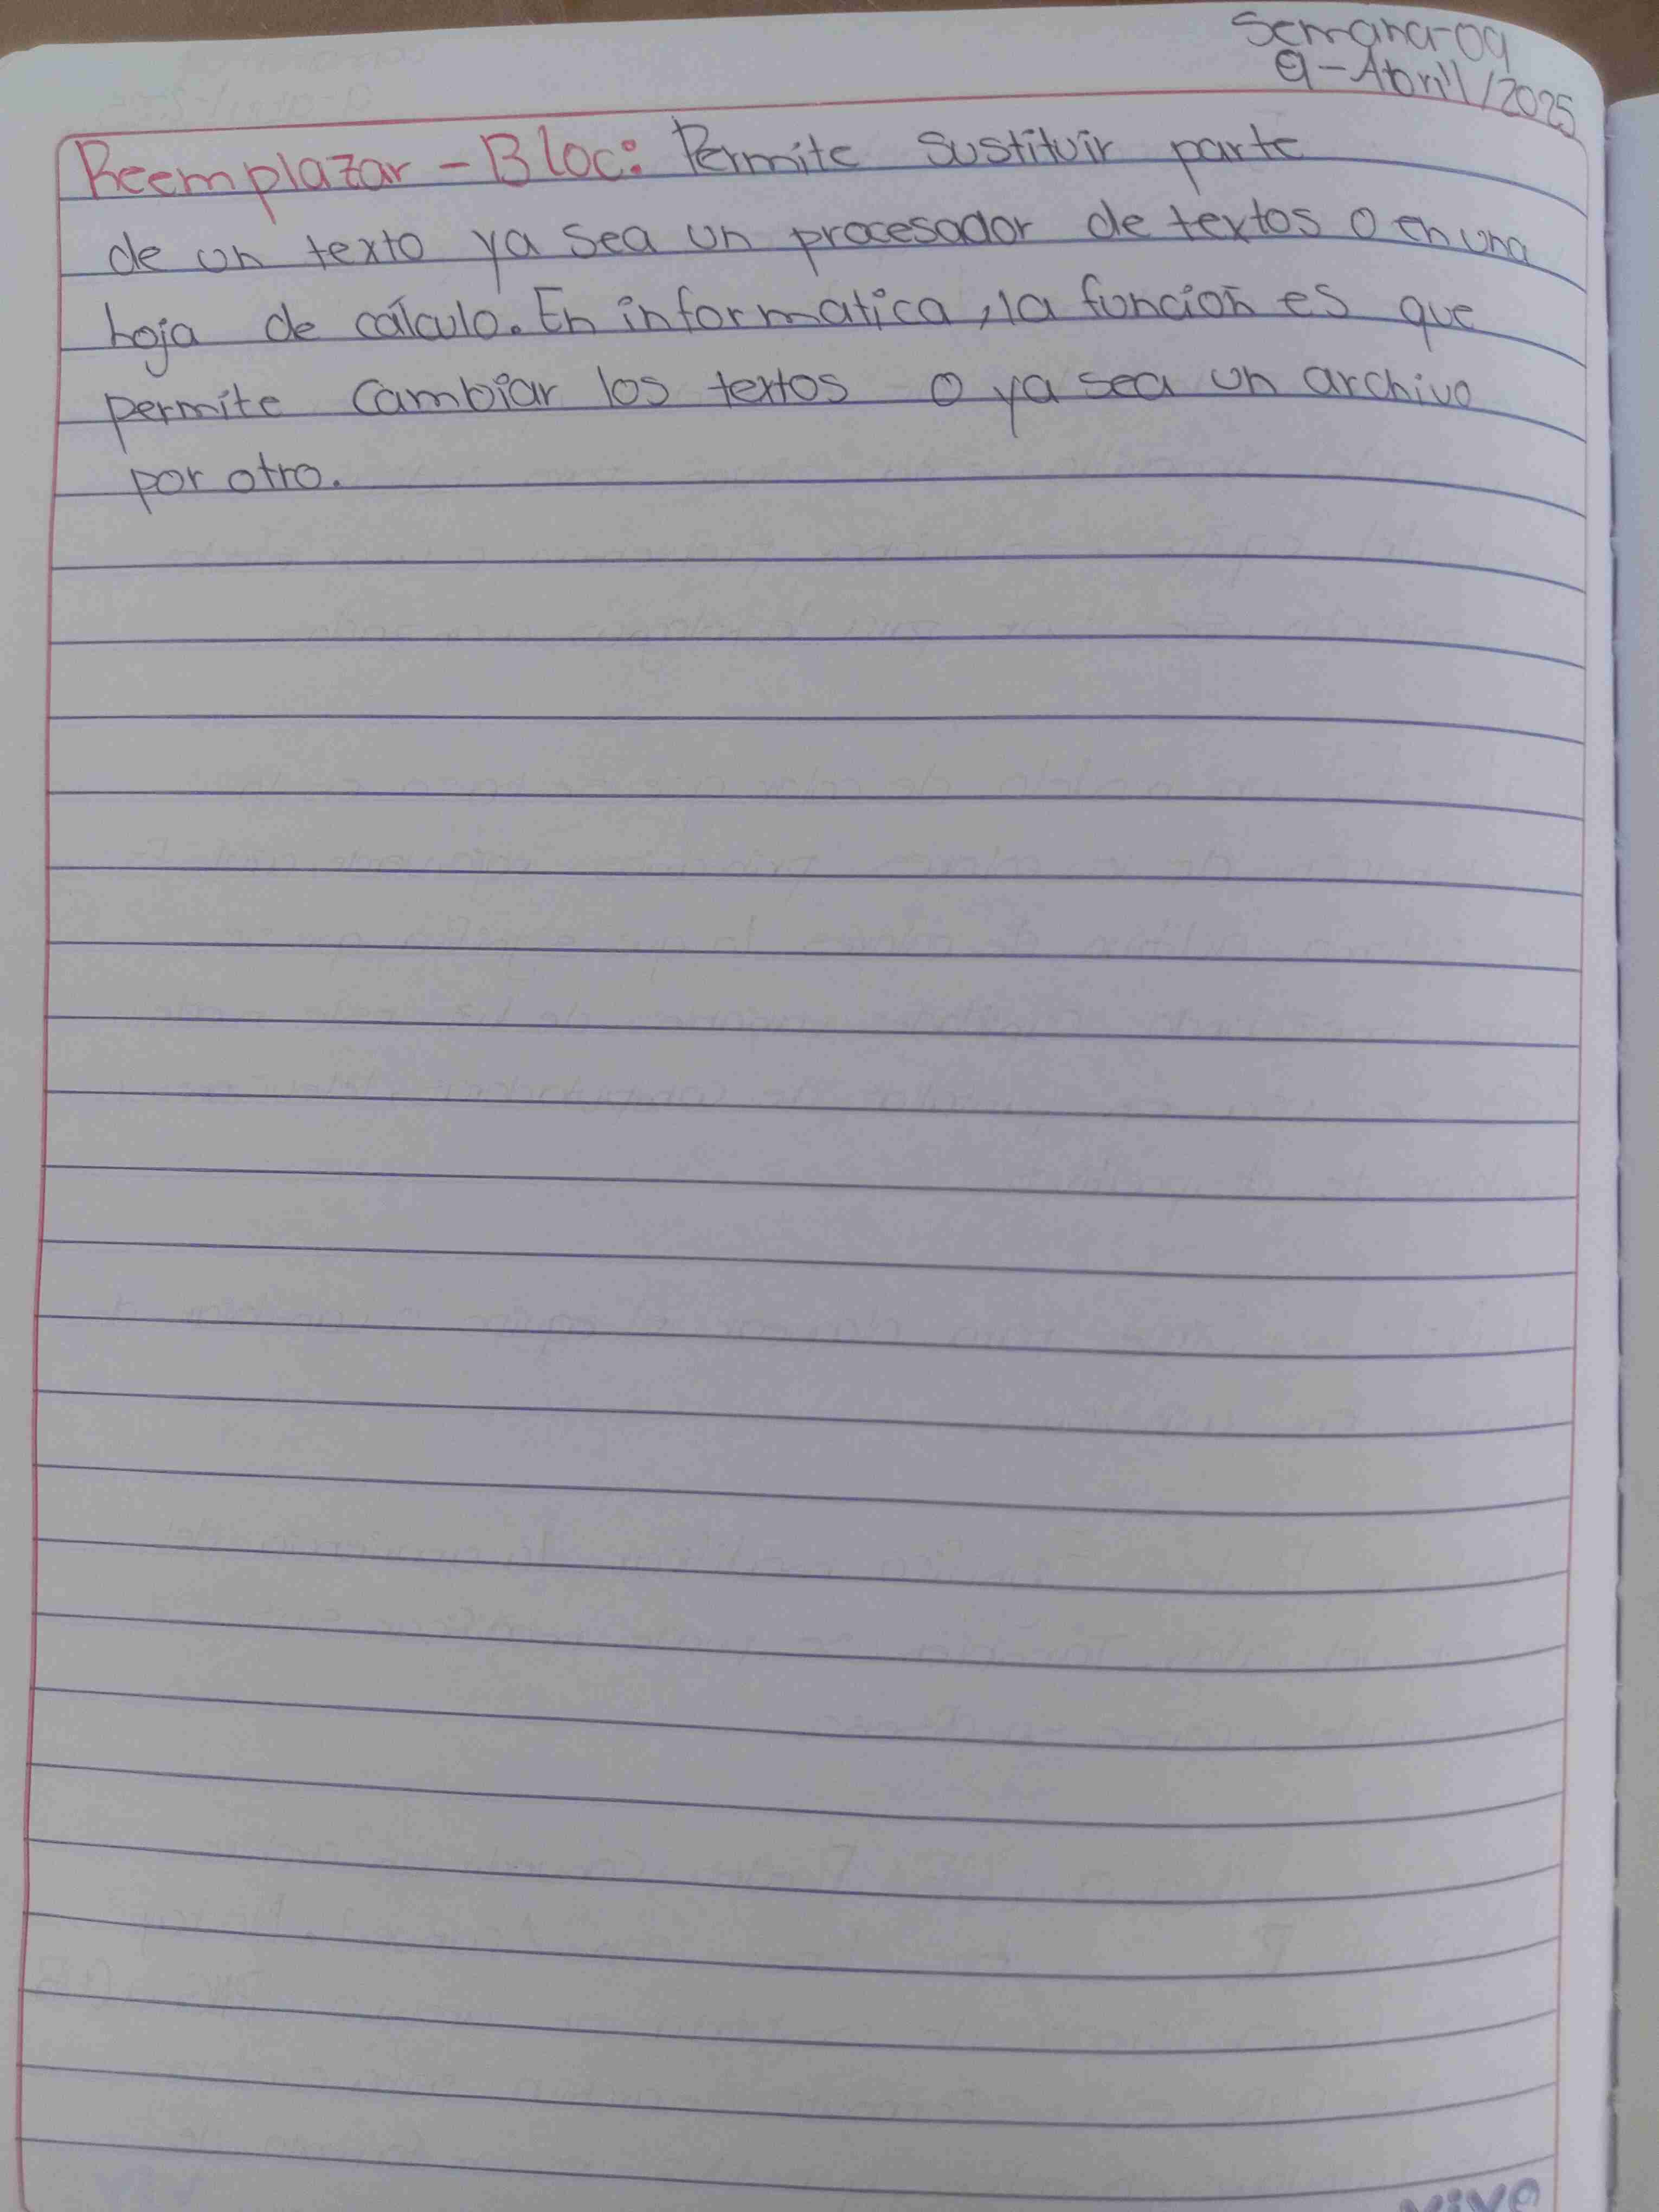 Semana-09
9-Abril/2025
Reemplazar-Bloc: Permite sustituir parte
de un texto ya sea un procesador de textos o en una
hoja de cálculo. En informatica, la función es que
permite cambiar los textos o ya sea un archivo
por otro.
vivo